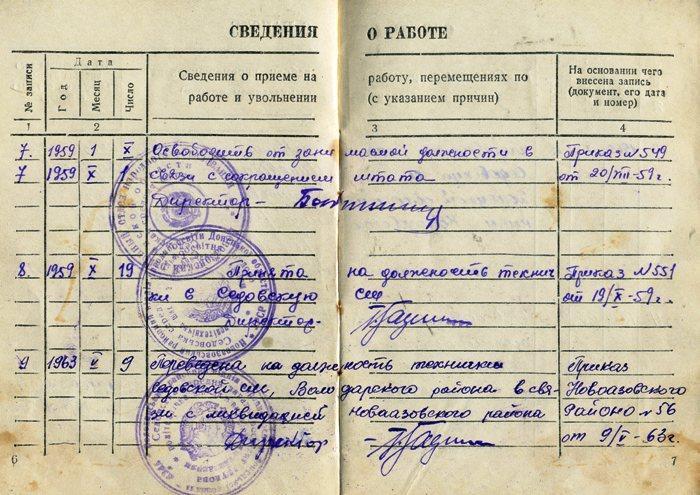 СВЕДЕНИЯ О РАБОТЕ
№ записи
Дата
Год
Месяц
Число
Сведения о приеме на работу, перемещениях по
работе и увольнении (с указанием причин)
На основании чего
внесена запись
(документ, его дата
и номер)
1 2 3 4
7. 1959 1 XI Освободить от занимаемой должности в Приказ №549
7 1959 X 1 связи с сокращением штата от 20/VII-59г.
Директор-
8. 1959 X 19 Принята на должность технич Приказ №551
ки в Седовскую сш от 19/X-59г.
Директор-
9 1963 II 9 Переведена на должность технички Приказ
Седовской сш, Володарского района в свя- Новоазовского
зи с ликвидацией Новоазовского района Районо №56
Директор от 9/II-63г.
6 7